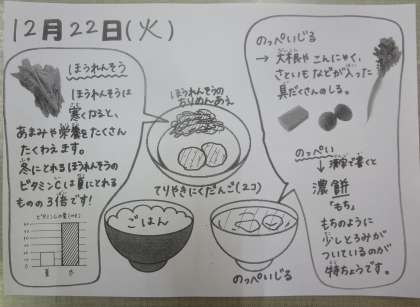 12月22日(火)
ほうれんそう
ほうれんそうは
寒くなると、
あまみや栄養をたくさん
たくわえます。
冬にとれるほうれんそうの
ビタミンCは夏にとれる
ものの3倍です!
ビタミンCの量(mg)
夏 冬
ほうれんそうの
おりめんあえ
てりやきにくだんご(2コ)
ごはん
のっぺいじる
のっぺいじる
→ 大根や こんにゃく、
さといも などが入った
具だくさんのしる。
のっぺい
↓ 漢字で書くと
濃餅
「もち」
もちのように
少しとろみが
ついているのが
特ちょうです。